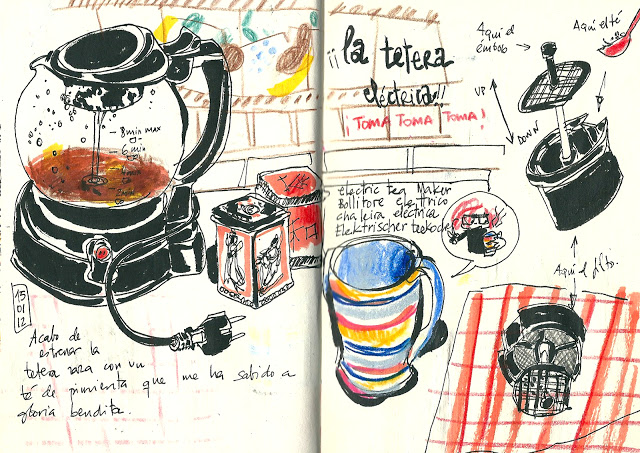 8 min max
6 min
15
01
12
Acabo de
estrenar la
tetera rara con un
té de pimienta que me ha sabido a
gloria bendita.
¡¡la tetera
eléctrica!!
¡TOMA TOMA TOMA!
electric tea Maker
Bollitore elettrico
chaleira eléctrica
Elektrischer teekocher
Aquí el
émbolo
Aquí el té
UP
DOWN
Aquí el filtro.